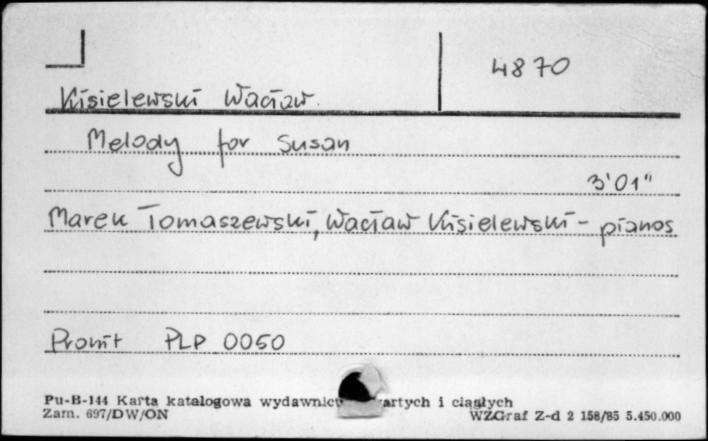 4870
Kisielewski Wacław
Melody for Susan
3'01"
Marek Tomaszewski, Wacław Kisielewski - pianos
Pronit PLP 0050
Pu-B-144 Karta katalogowa wydawnictw zwartych i ciągłych
Zam. 697/DW/ON WZGraf Z-d 2 158/85 5.450.000